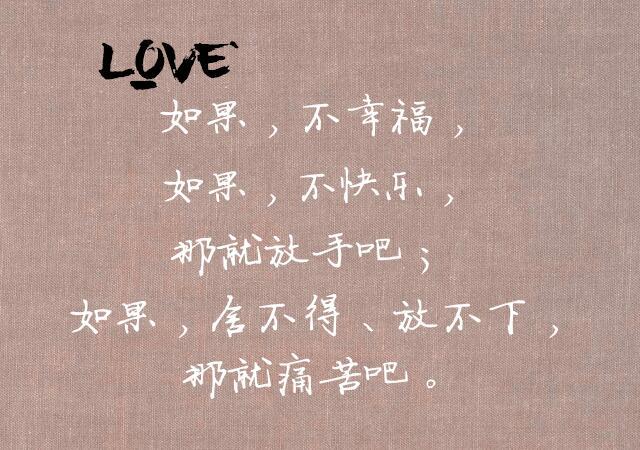 LOVE
如果，不幸福，
如果，不快乐，
那就放手吧；
如果，舍不得、放不下，
那就痛苦吧。